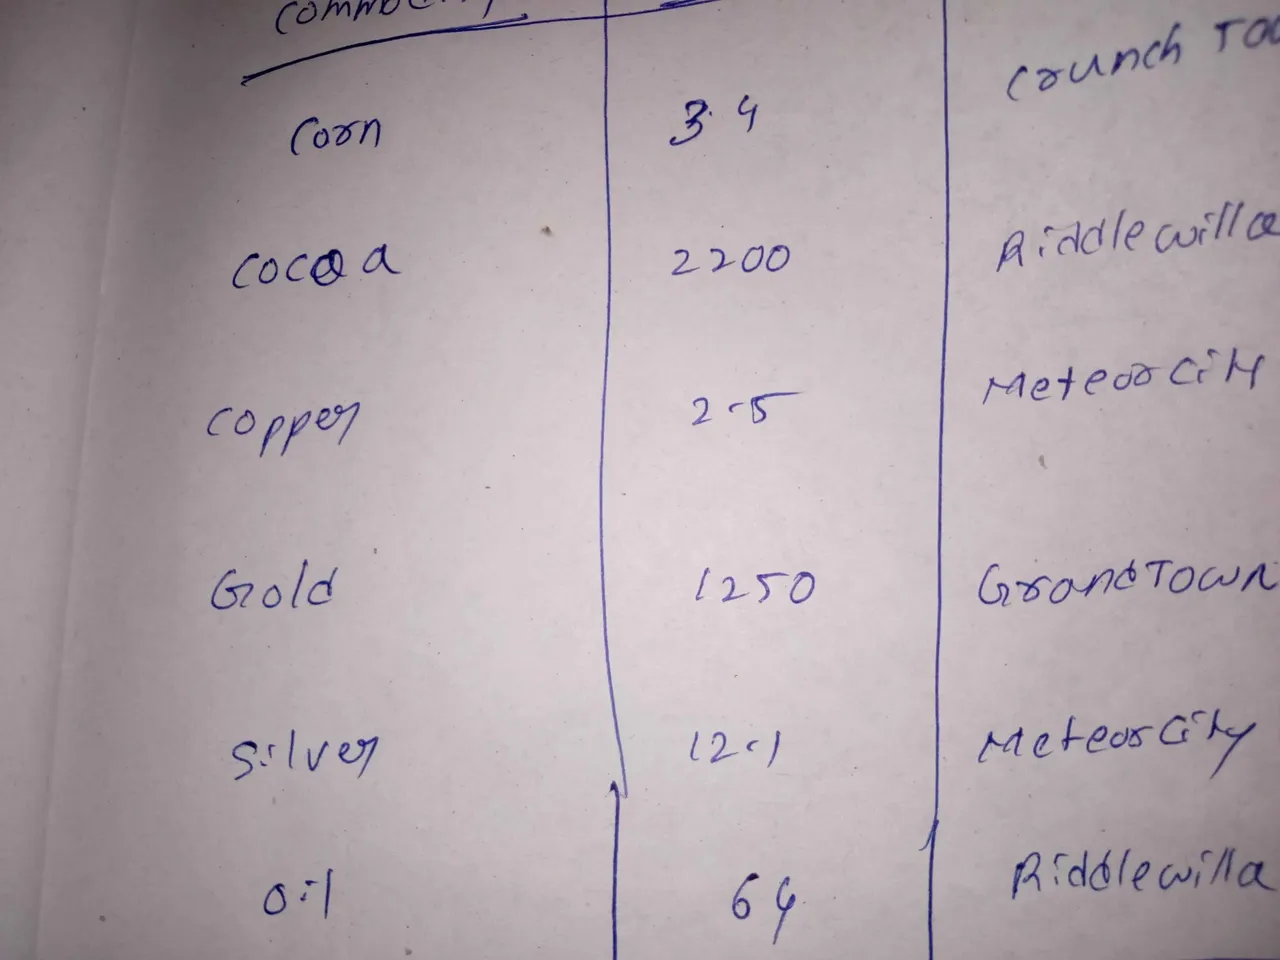 Corn 3.4 Crunch
Cocoa 2200 Riddlewilla
Copper 2.5 MeteorCity
Gold 1250 GrandTown
Silver 12.1 MeteorCity
Oil 64 Riddlewilla